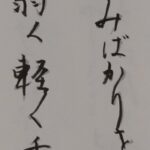 みばかりを
弱く軽く